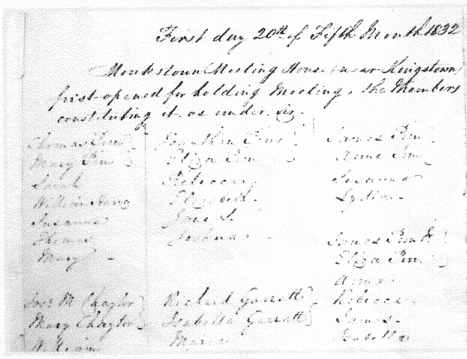 First day 20th of Fifth Month 1832
Monkstown Meeting House (near Kingstown)
first opened for holding Meeting, the Members
constituting it as under, viz.
Thomas Pim Jonathan Pim James Pim
Mary Pim Eliza Pim Anne Pim
Sarah Rebecca Susanna
William Harvey Elizabeth Lydia
Susanna Jane S.
Thomas Joshua James Pim Jr
Mary Eliza Pim
Anna
Jos: M Chaytor Richard Garratt Rebecca
Mary Chaytor Isabella Garratt James
William Maria Isabella